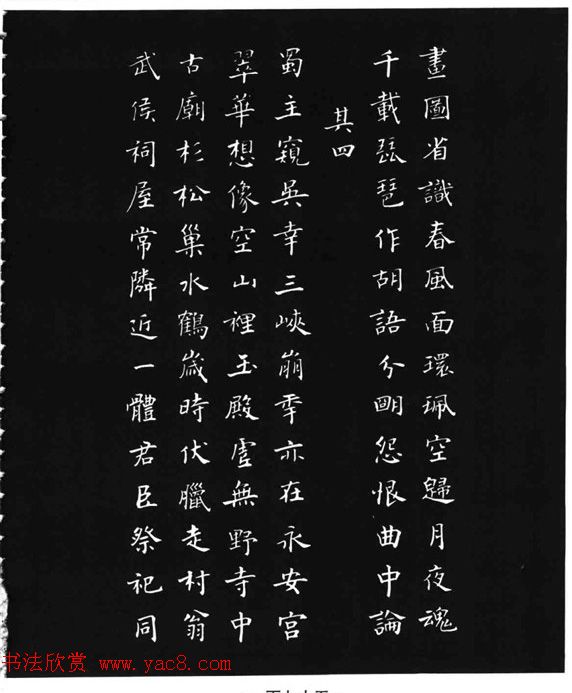 畫圖省識春風面環珮空歸月夜魂
千載琵琶作胡語分明怨恨曲中論
其四
蜀主窺吳幸三峽崩年亦在永安宮
翠華想像空山裡玉殿虛無野寺中
古廟杉松巢水鶴歲時伏臘走村翁
武侯祠屋常隣近一體君臣祭祀同
书法欣赏 www.yac8.com